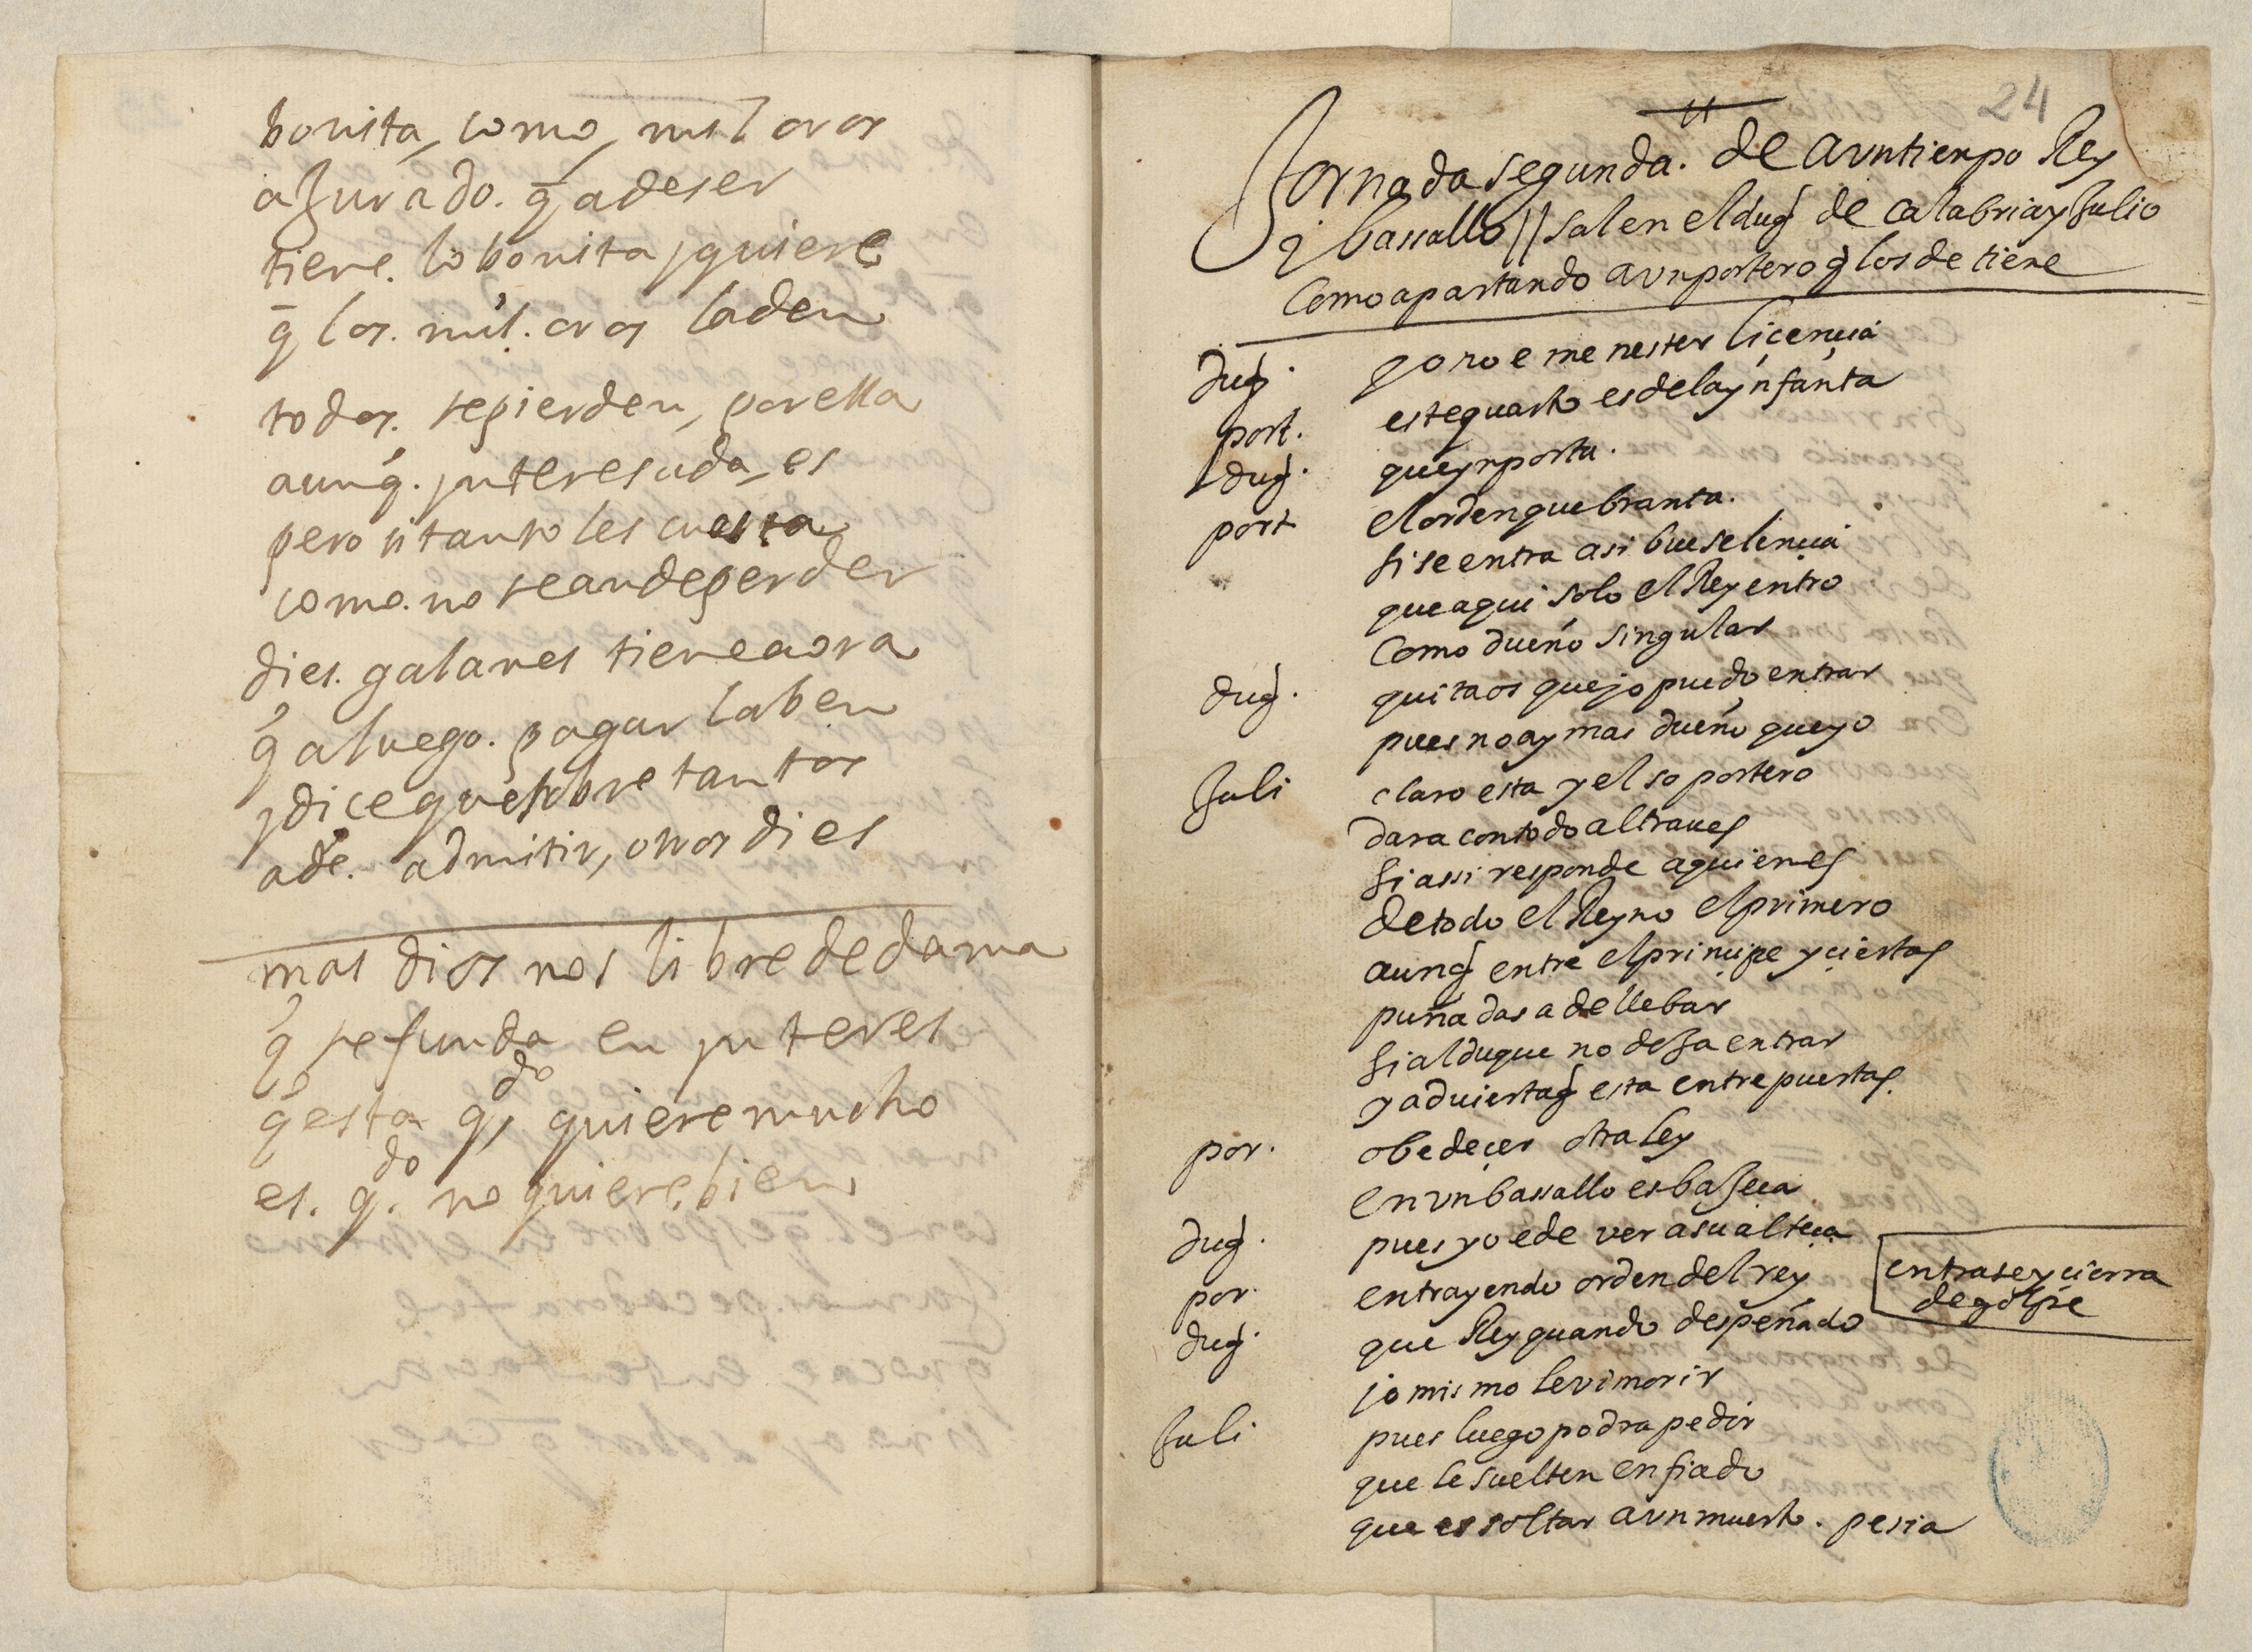 bonita, como, mil oros
a jurado. q̄ a de ser
tiene. lo bonita y quiere
q̄ los. mil. oros la den
todos. se pierden, por ella
aunq̄. ynteresada, es
pero si tanto les cuesta
como. no se an de perder
dies. galanes tiene aora
q̄ a luego. pagar la ben
y dice que sobre tantos
a de. admitir, otros dies
mas dios nos libre de dama
q̄ se funda en ynteres
q̄ esta q̃do quiere mucho
es. q̃do. no quiere, bien
24
Jornada segunda. de a un tienpo Rey
i bassallo // salen el duq̄ de calabria y Julio
Como apartando a vn portero q̄ los detiene
duq̄. yo no e menester licençia
port. este quarto es de la ynfanta
duq̄. que ynporta.
port el orden quebranta.
si se entra asi bueselençia
que aqui solo el Rey entro
Como dueño singular
duq̄. quitaos que jo puedo entrar
pues no ay mas dueño que yo
Juli claro esta y el so portero
dara con todo al traues
si assi responde a quien es
de todo el Reyno el primero
aunq̄ entre el prinçipe y çiertas
puñadas a de llebar
si al duque no deja entrar
y aduierta q̄ esta entre puertas.
por. obedeçer otra ley
en vn bassallo es bajeça
duq̄. pues yo e de ver a su alteça
por. entrayendo orden del rey
entrase y çierra
de golpe
duq̄. que Rey quando despeñado
jo mismo le vi morir
Juli pues luego podra pedir
que le suelten en fiado
que es soltar a vn muerto. pesia